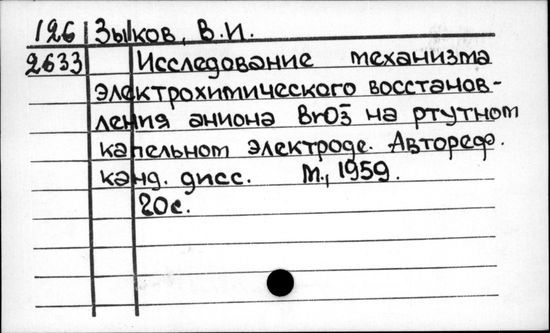 126 Зыков, В.И.
2633 Исследование механизма
электрохимического восстанов-
ления аниона BrO₃⁻ на ртутном
капельном электроде. Автореф.
канд. дисс. М., 1959.
20с.